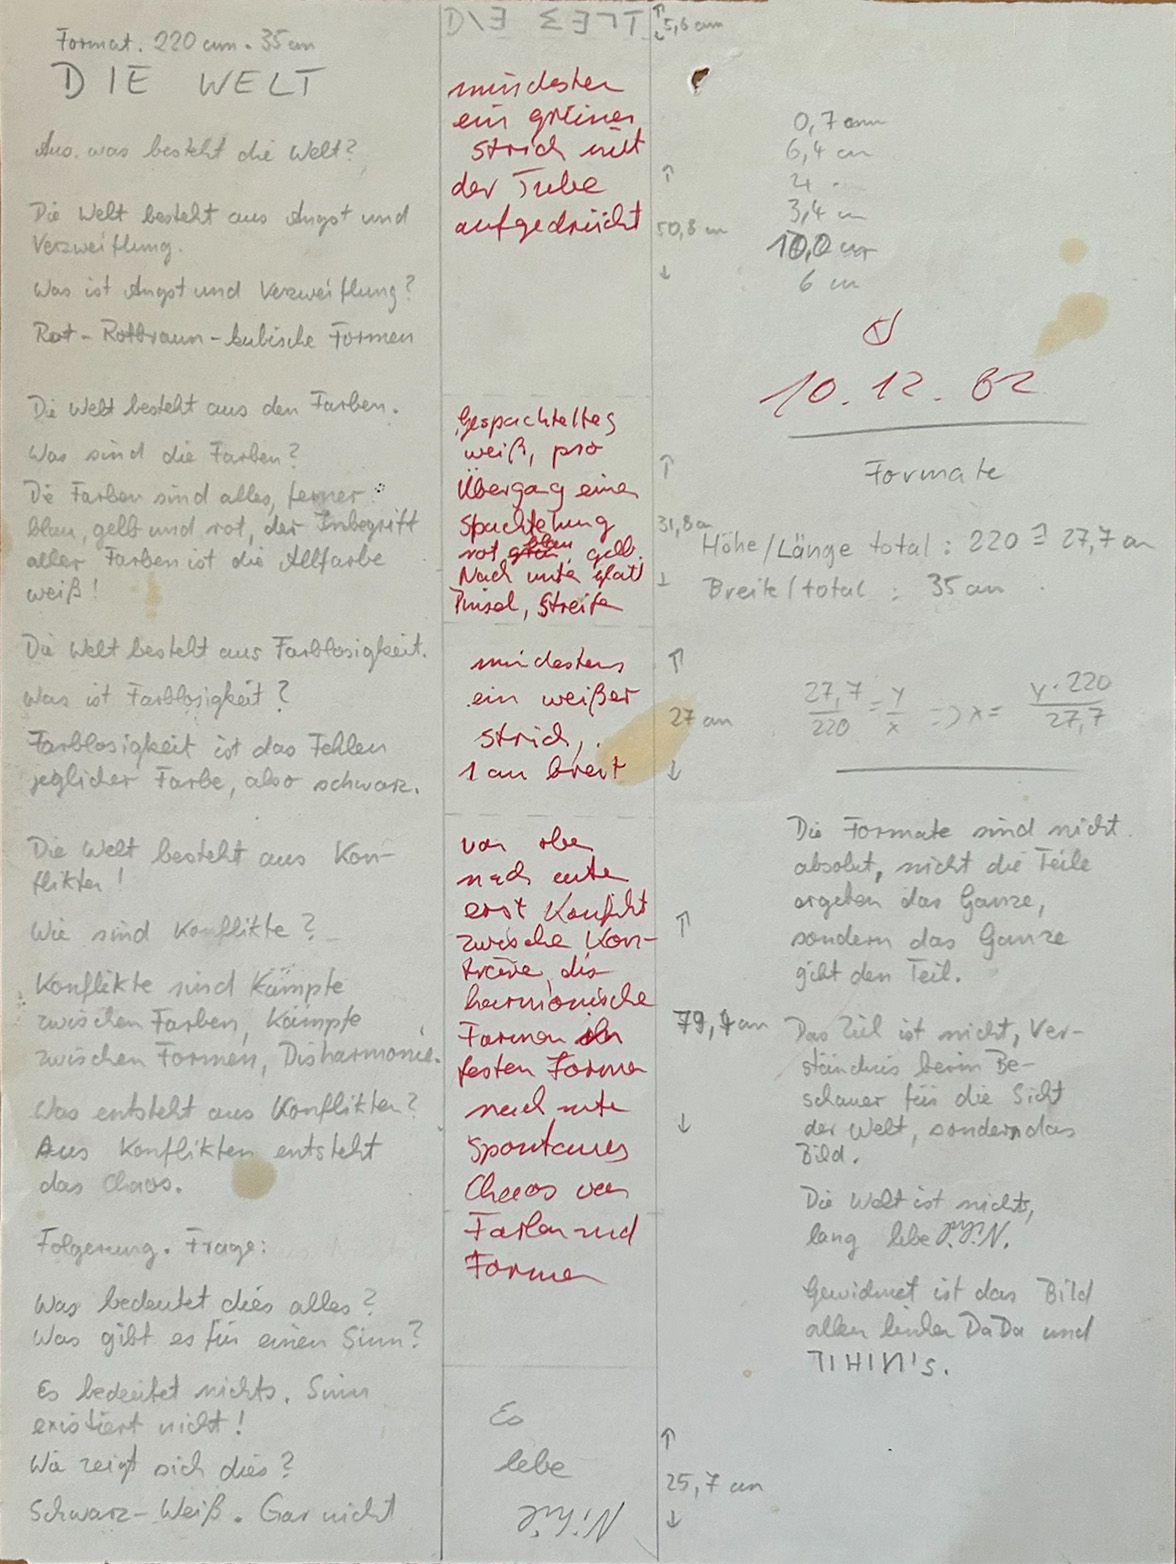 Format. 220 cm · 35 cm
DIE WELT
Aus was besteht die Welt?
Die Welt besteht aus Angst und
Verzweiflung.
Was ist Angst und Verzweiflung?
Rot - Rotbraun - kubische Formen
Die Welt besteht aus den Farben.
Was sind die Farben?
Die Farben sind alles, ferner :
blau, gelb und rot, der Inbegriff
aller Farben ist die Allfarbe
weiß!
Die Welt besteht aus Farblosigkeit.
Was ist Farblosigkeit?
Farblosigkeit ist das Fehlen
jeglicher Farbe, also schwarz.
Die Welt besteht aus Kon-
flikten!
Wie sind Konflikte?
Konflikte sind Kämpfe
zwischen Farben, Kämpfe
zwischen Formen, Disharmonie.
Was entsteht aus Konflikten?
Aus Konflikten entsteht
das Chaos.
Folgerung. Frage:
Was bedeutet dies alles?
Was gibt es für einen Sinn?
Es bedeutet nichts. Sinn
existiert nicht!
Wie zeigt sich dies?
Schwarz-Weiß. Gar nicht
DIE WELT
mindesten
ein grüner
Strich mit
der Tube
aufgedrückt
Gespachteltes
weiß, pro
Übergang einen
Spachtelung
rot blau gelb.
Nach unten glatt
Pinsel, Streifen
mindestens
ein weißer
Strich,
1 cm breit
von oben
nach unten
erst Konflikt
zwischen Kon-
träre, dis-
harmonische
Farben
festen Formen
nach unten
Spontanes
Chaos von
Farben und
Formen
Es
lebe
Nihil
5,6 cm
50,8 cm
31,8 cm
27 cm
79,9 cm
25,7 cm
0,7 cm
6,4 cm
4
3,4 cm
10,0 cm
6 cm
10.12.82
Formate
Höhe/Länge total : 220 ≙ 27,7 cm
Breite/total : 35 cm
27,7/220 = y/x => x = y·220/27,7
Die Formate sind nicht
absolut, nicht die Teile
ergeben das Ganze,
sondern das Ganze
gibt den Teil.
Das Ziel ist nicht, Ver-
ständnis beim Be-
schauer für die Sicht
der Welt, sondern das
Bild.
Die Welt ist nichts,
lang lebe
Gewidmet ist das Bild
allen DaDa und